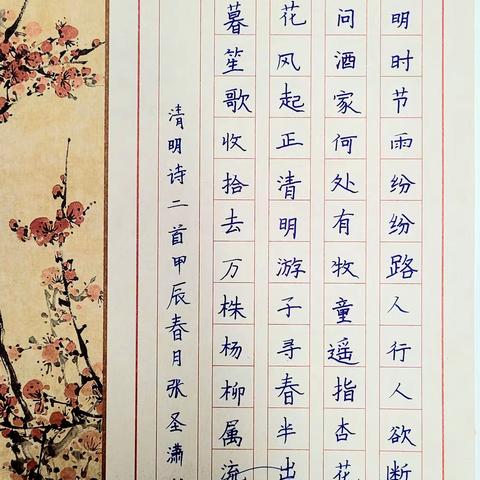 明时节雨纷纷路人行人欲断
问酒家何处有牧童遥指杏花
花风起正清明游子寻春半出
暮笙歌收拾去万株杨柳属流
清明诗二首甲辰春月张圣潇